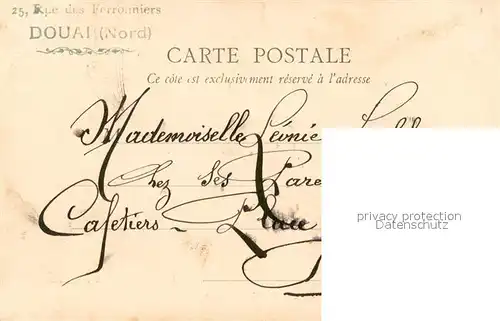 25, Rue des Ferronniers
DOUAI (Nord)
CARTE POSTALE
Ce côté est exclusivement réservé à l'adresse
Mademoiselle Léonie
Chez Ses Pare
Cafetiers - Place
privacy protection
Datenschutz